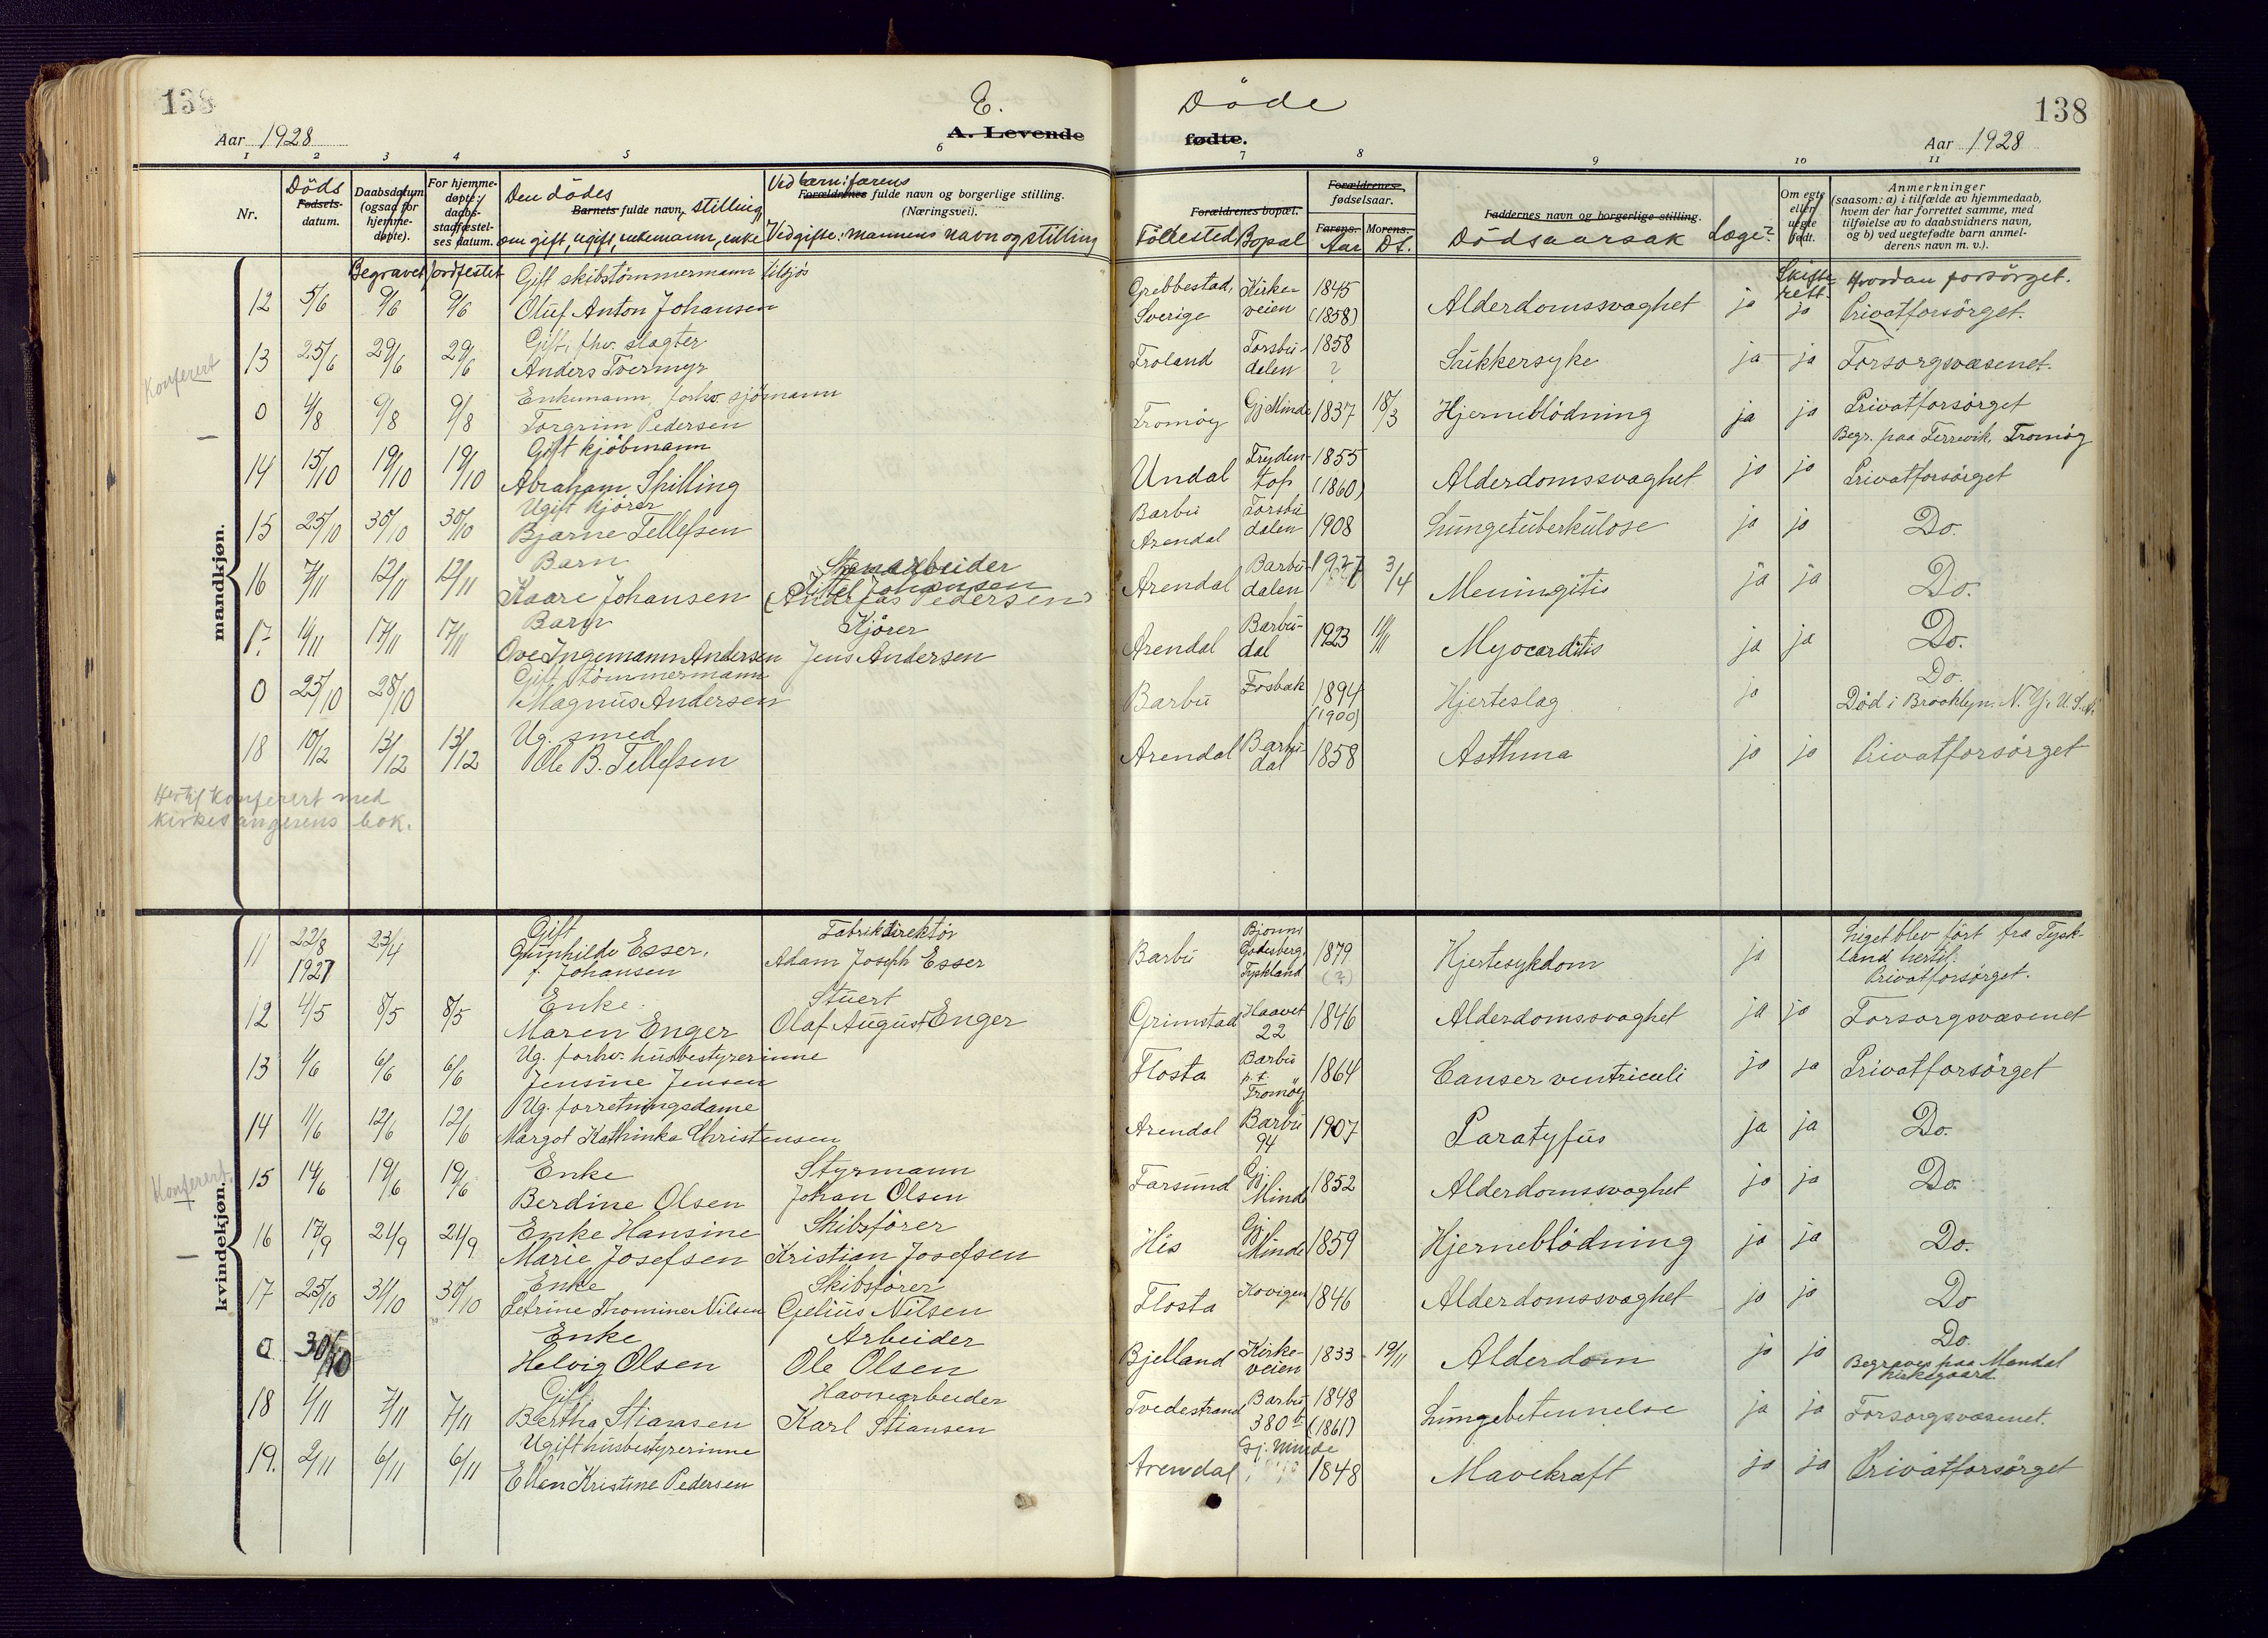 138
E.
Døde
138
Aar 1928
A. Levende
fødte.
Aar 1928
1 2 3 4 5 6 7 8 9 10 11
Nr.
Døds
Fødsels-
datum.
Daabsdatum
(ogsaa for
hjemme-
døpte).
For hjemme-
døpte:
daabs-
stadfæstel-
ses datum.
Den dödes
Barnets fulde navn, stilling,
om gift, ugift, enkemann, enke
Ved barn: farens
Forældrenes fulde navn og borgerlige stilling.
(Næringsvei).
Ved gifte: mannens navn og stilling
Forældrenes bopæl.
Föllested Bopal
Forældrenes
fødselsaar.
Farens. Morens.
Aar Dt.
Faddernes navn og borgerlige stilling.
Dödsaarsak Læge?
Om egte
eller
uegte
født.
Anmerkninger
(saasom: a) i tilfælde av hjemmedaab,
hvem der har forrettet samme, med
tilføielse av to daabsvidners navn,
og b) ved uegtefødte barn anmel-
derens navn m. v.).
Begravet Jordfestet
Skifte-
rett.
Hvordan forsörget.
mandkjøn.
Konferert
Gift skibstömmermann tilsjös
12 5/6 9/6 9/6 Oluf Anton Johansen Grebbestad, Sverige Kirkeveien 1845 (1858) Alderdomssvaghet ja ja Privatforsörget.
Gift, fhv. slagter
13 25/6 29/6 29/6 Anders Tvermyr Froland Torsbudalen 1858 ? Sukkersyke ja ja Forsorgsvæsenet.
Enkemann, forhv. sjömann
0 4/8 9/8 9/8 Torgrim Pedersen Tromöy Gj. Minde 1837 18/3 Hjerneblödning ja ja Privatforsörget
Begr. paa Færvik, Tromöy
Gift kjöbmann
14 15/10 19/10 19/10 Abraham Spilling Undal Frydentop 1855 (1860) Alderdomssvaghet ja ja Privatforsörget
Ugift kjörer
15 25/10 30/10 30/10 Bjarne Tellefsen Barbu Arendal Torsbudalen 1908 Lungetuberkulose ja ja Do.
Barn Stenarbeider
16 7/11 12/11 12/11 Kaare Johansen Johansen (Andreas Pedersen) Arendal Barbudalen 1927 3/4 Meningitis ja ja Do.
Barn Kjörer
17. 14/11 17/11 17/11 Ove Ingemann Andersen Jens Andersen Arendal Barbudal 1923 Myocarditis ja ja Do.
Gift tömmermann Do.
0 25/10 28/10 Magnus Andersen Barbu Fosbæk 1894 (1900) Hjerteslag ja Död i Brooklyn. N. Y. U.S.A.
Ug. smed
18 10/12 13/12 13/12 Ole B. Tellefsen Arendal Barbudal 1858 Asthma ja ja Privatforsörget
Hertil konferert med
kirkesangerens bok.
kvindekjøn.
Konferert.
Gift Fabrikdirektör
11 22/8 1927 23/4 Gunhilde Esser, f. Johansen Adam Joseph Esser Barbu Godesberg, Tyskland 1879 (?) Hjertesykdom ja Liget blev fört fra Tyskland hertil.
Privatforsörget.
Enke. Stuert
12 4/5 8/5 8/5 Maren Enger Olaf August Enger Grimstad Haavet 22 1846 Alderdomssvaghet ja ja Forsorgsvæsenet
Ug. forhv. husbestyrerinne
13 1/6 6/6 6/6 Jensine Jensen Flosta Barbu p.t. Tromöy 1864 Canser ventriculi ja ja Privatforsörget
Ug. forretningsdame
14 11/6 12/6 12/6 Margot Kathinka Christensen Arendal Barbu 94 1907 Paratyfus ja ja Do.
Enke Styrmann
15 14/6 19/6 19/6 Berdine Olsen Johan Olsen Farsund Gj. Minde 1852 Alderdomssvaghet ja ja Do.
Enke Hansine Skibsförer
16 17/9 21/9 21/9 Marie Josefsen Kristian Josefsen His Gj. Minde 1859 Hjerneblödning ja ja Do.
Enke Skibsförer
17 25/10 31/10 30/10 Petrine Thomine Nilsen Gjelius Nilsen Flosta Kovigen 1846 Alderdomssvaghet ja ja Do
Enke Arbeider Do.
0 30/10 Helvig Olsen Ole Olsen Bjelland Kirkeveien 1833 19/11 Alderdom ja ja Begraves paa Mandal kirkegaard
Gift Havnearbeider
18 1/11 7/11 7/11 Bertha Stiansen Karl Stiansen Tvedestrand Barbu 380 b 1848 (1861) Lungebetennelse ja ja Forsorgsvæsenet.
Ugift husbestyrerinne
19. 2/11 6/11 6/11 Ellen Kristine Pedersen Arendal Gj. Minde 1848 Mavekræft ja ja Privatforsörget